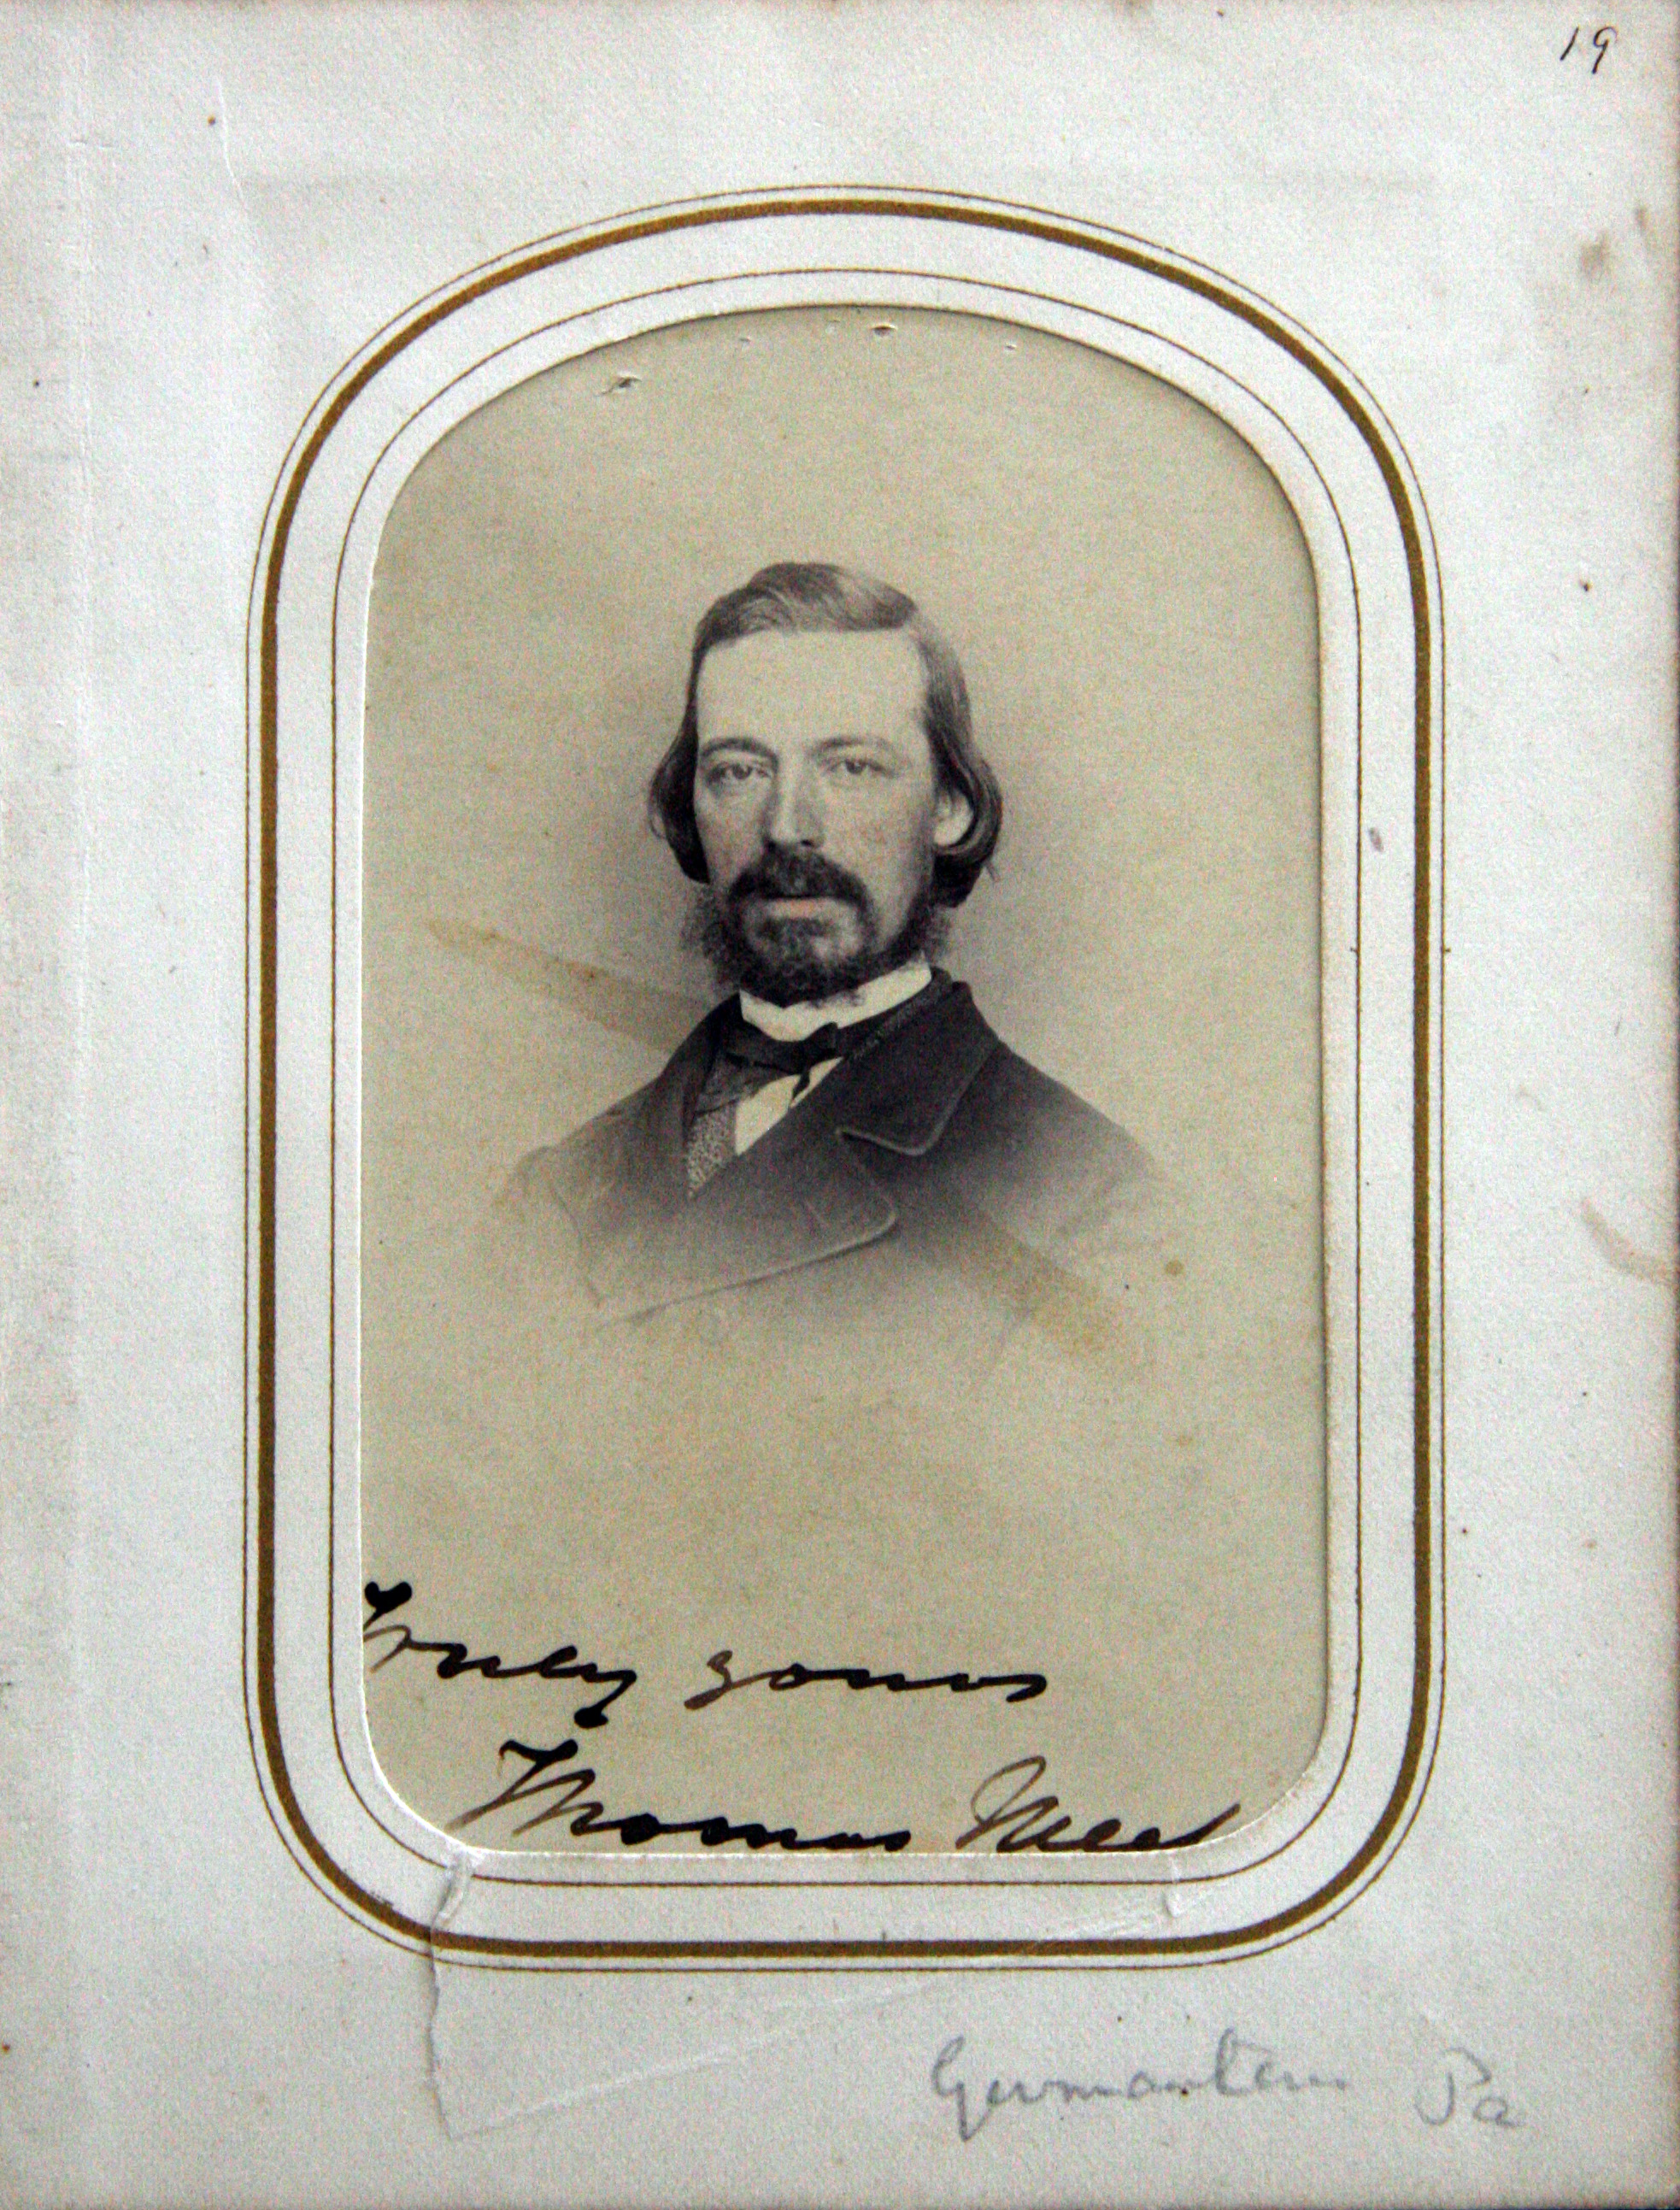 19
Truly yours
Thomas Mee
Germantown Pa